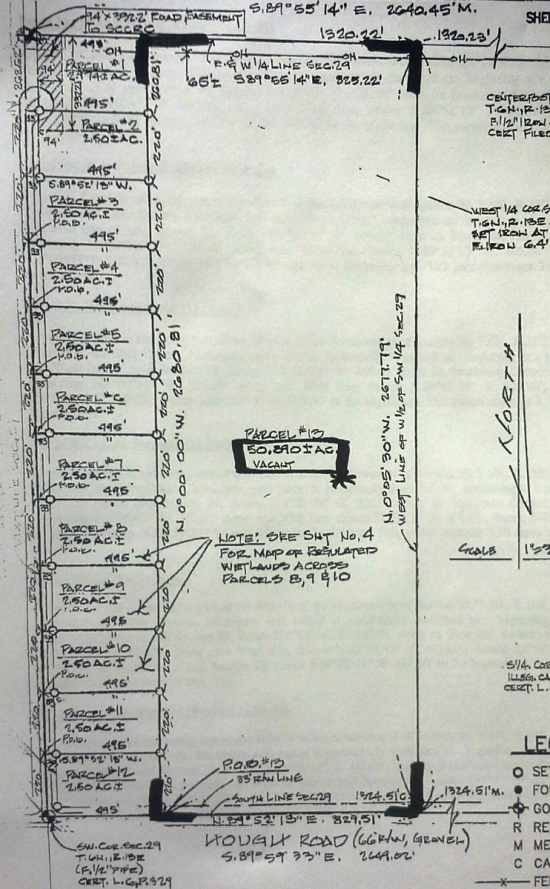 S.89°55'14" E. 2640.45'M.
SHE
94' x 332.2' ROAD EASEMENT
TO SCCRC
495'
1320.22'
1320.23'
OH
OH
OH
OH
PARCEL #1
E. & W 1/4 LINE SEC. 29
S 89°55'14" E. 825.22'
65'±
94'
495'
PARCEL #2
2.50±AC.
94'
CENTERPOST
T.6N., R.13
F. 1/2" IRON
CERT FILED
495'
S.89°52'13" W.
PARCEL #3
2.50 AC.±
P.O.B.
495'
WEST 1/4 COR. S
T.6N., R.13E.
SET IRON AT
F. IRON 6.4'
PARCEL #4
2.50 AC.±
P.O.B.
495'
PARCEL #5
2.50 AC.±
P.O.B.
495'
PARCEL #6
2.50 AC.±
P.O.B.
495'
220'
220'
220'
220'
220'
220'
220'
220'
220'
220'
N 0°00'00" W. 2680.81'
N.0°05'30" W. 2677.79'
WEST LINE OF W 1/2 OF SW 1/4 SEC. 29
NORTH
PARCEL #13
50.890± AC.
VACANT
PARCEL #7
2.50 AC.±
P.O.B.
495'
PARCEL #8
2.50 AC.±
P.O.B.
495'
NOTE: SEE SHT No. 4
FOR MAP OF REGULATED
WETLANDS ACROSS
PARCELS 8, 9 & 10
SCALE
PARCEL #9
2.50 AC.±
P.O.B.
495'
PARCEL #10
2.50 AC.±
P.O.B.
495'
S 1/4 COR
ILLEG. CA
CERT. L.
PARCEL #11
2.50 AC.±
P.O.B.
495'
S.89°52'13" W.
PARCEL #12
2.50 AC.±
495'
P.O.B. #13
33' R/W LINE
SOUTH LINE SEC 29
1324.51'C
1324.51'M.
N.89°52'13" E. 829.51'
HOUGH ROAD (66' R/W, GRAVEL)
S.89°59'33" E.
SW. COR. SEC. 29
T.6N., R.13E
(F. 1/2" PIPE)
CERT. L.6, P.329
LEG
SET
FOU
GO
R RE
M ME
C CA
FE